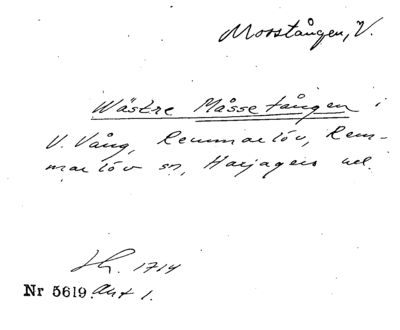 Mosstången, V.
Wästre Måssetången i
V. Vång, Remmarlöv, Rem-
marlöv sn, Harjagers hd.
Lh. 1714
Nr 5619. Akt 1.